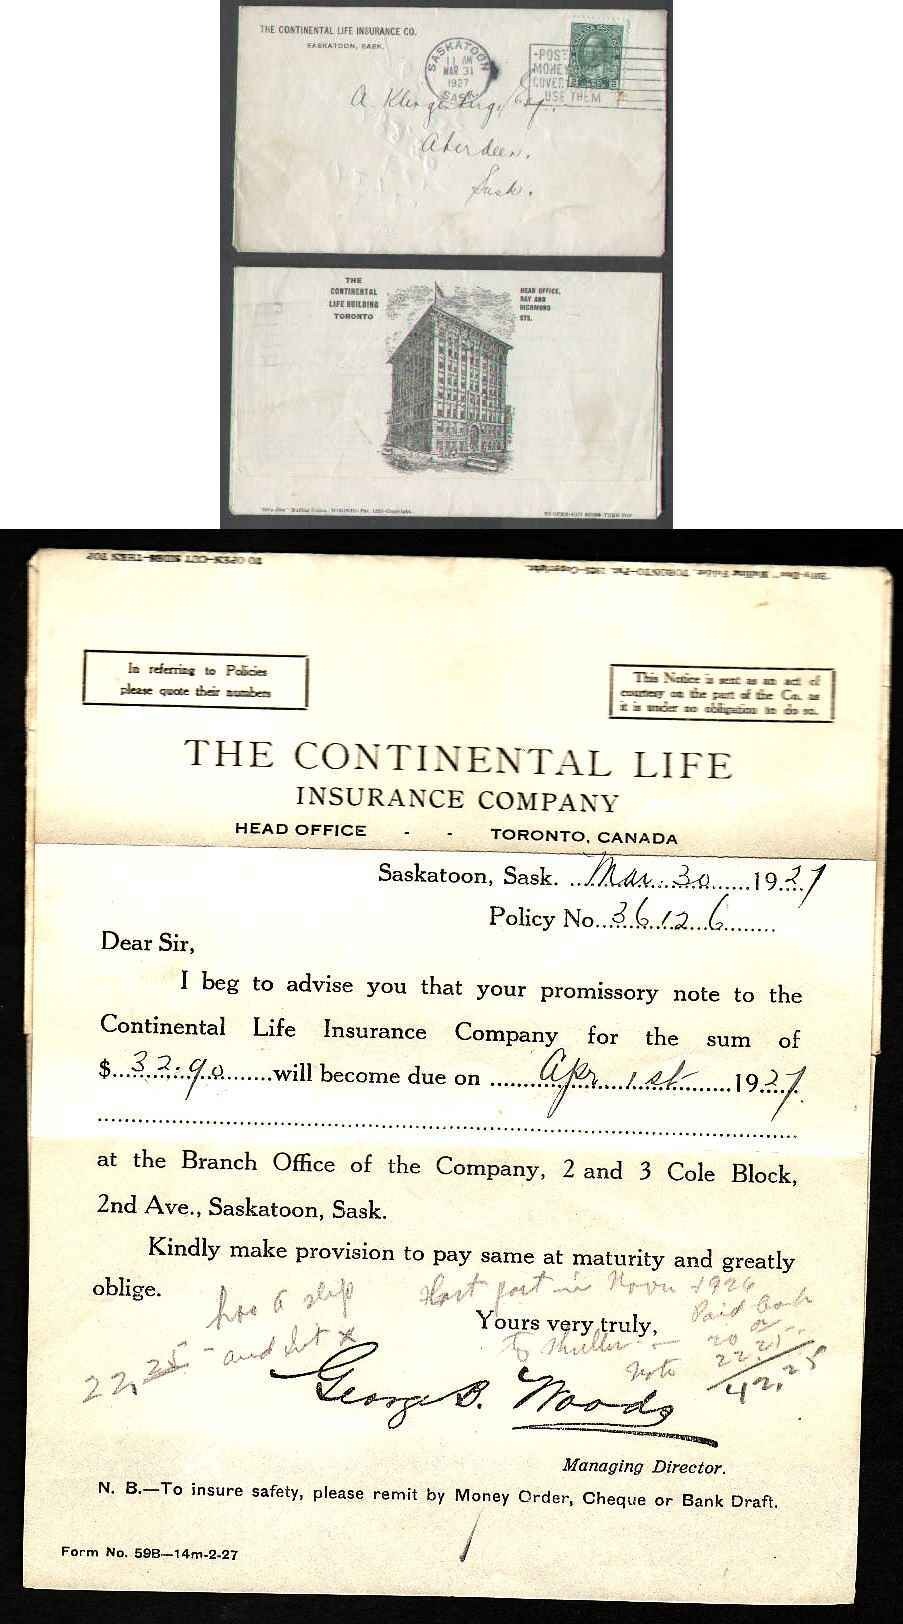 THE CONTINENTAL LIFE INSURANCE CO.
SASKATOON, SASK.
SASKATOON
11 AM
MAR 31
1927
SASK.
POST
MONEY
COVER
USE THEM
A.
Aberdeen,
Sask.
THE
CONTINENTAL
LIFE BUILDING
TORONTO
HEAD OFFICE,
BAY AND
RICHMOND
STS.
TO OPEN–CUT SIDES–THEN TOP
TO OPEN–CUT SIDES–THEN TOP
In referring to Policies
please quote their numbers
This Notice is sent as an act of
courtesy on the part of the Co. as
it is under no obligation to do so.
THE CONTINENTAL LIFE
INSURANCE COMPANY
HEAD OFFICE - - TORONTO, CANADA
Saskatoon, Sask. Mar. 30 1927
Policy No. 36126
Dear Sir,
I beg to advise you that your promissory note to the
Continental Life Insurance Company for the sum of
$ 32.90 will become due on Apr 1st 1927
at the Branch Office of the Company, 2 and 3 Cole Block,
2nd Ave., Saskatoon, Sask.
Kindly make provision to pay same at maturity and greatly
oblige.
has a slip
22.25 and
in Nov 1926
Paid
Yours very truly,
To Muller
20
22 25
Note
42.25
George B. Woods
Managing Director.
N. B.—To insure safety, please remit by Money Order, Cheque or Bank Draft.
Form No. 59B—14m-2-27